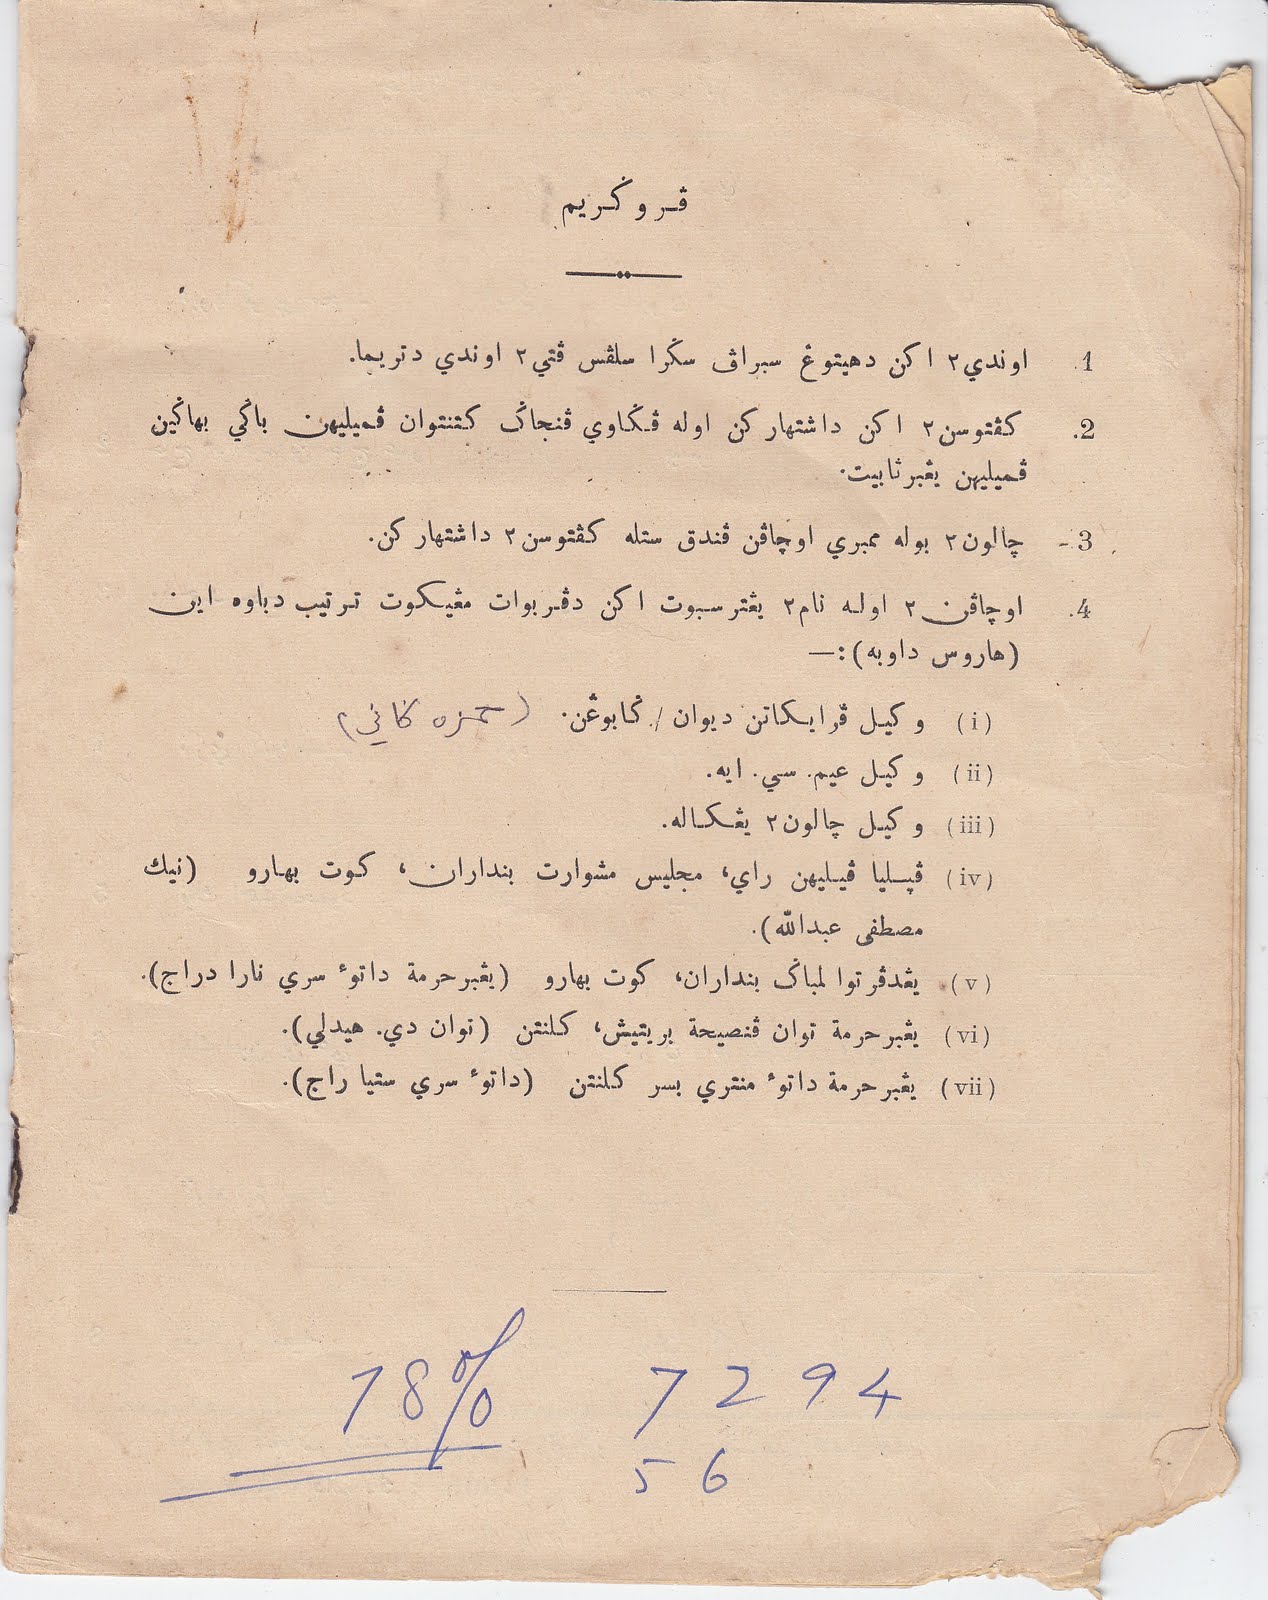 ڤروݢريم
1. اوندي٢ اکن دهيتوڠ سبراڤ سݢرا سلڤس ڤتي٢ اوندي دتريما.
2. کڤتوسن٢ اکن داشتهارکن اوله ڤݢاوي ڤنجاݢ کتنتوان ڤميليهن باݢي بهاݢين
ڤميليهن يڠبرثابيت.
3- چالون٢ بوله ممبري اوچاڤن ڤندق ستله کڤتوسن٢ داشتهارکن.
4. اوچاڤن٢ اوله نام٢ يڠترسبوت اکن دڤربوات مڠيکوت ترتيب دباوه اين
(هاروس داوبه):—
(i) وکيل ڤرايکاتن ديوان / ݢابوڠن. (حمزه
(ii) وکيل عيم. سي. ايه.
(iii) وکيل چالون٢ يڠکاله.
(iv) ڤڽليا ڤيليهن راي، مجليس مشوارت بنداران، کوت بهارو (نيك
مصطفى عبدالله).
(v) يڠدڤرتوا لمباݢ بنداران، کوت بهارو (يڠبرحرمة داتوء سري نارا دراج).
(vi) يڠبرحرمة توان ڤنصيحة بريتيش، کلنتن (توان دي. هيدلي).
(vii) يڠبرحرمة داتوء منتري بسر کلنتن (داتوء سري ستيا راج).
78% 7294
56